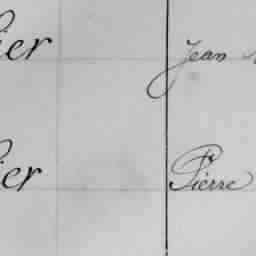 ier Jean
ier Pierre